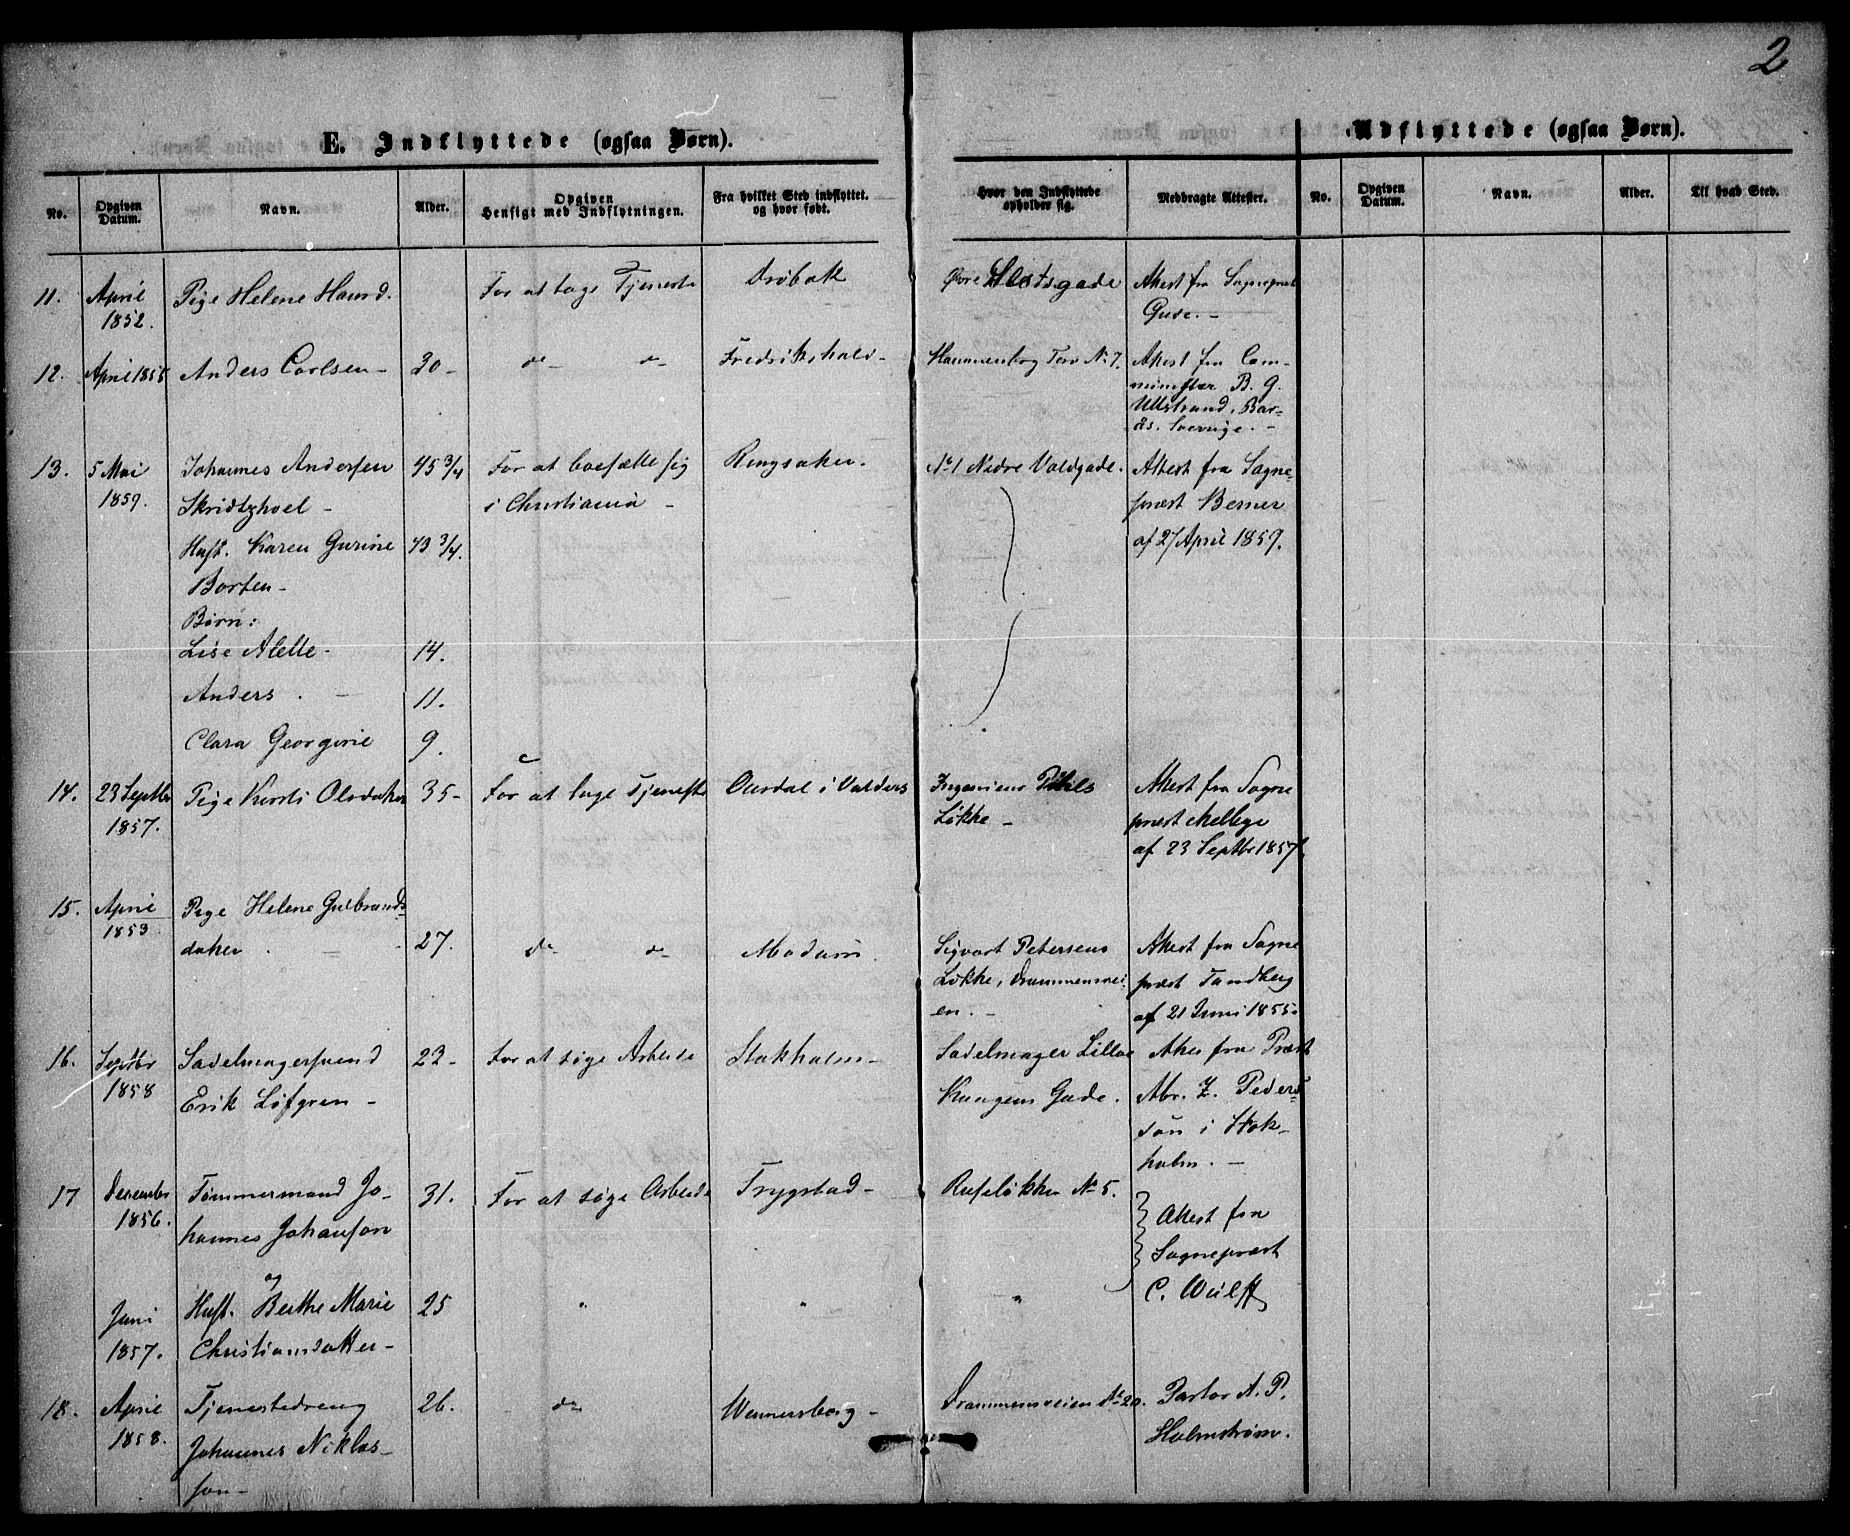 2
E. Indflyttede (ogsaa Børn).
Udflyttede (ogsaa Børn).
No.
Opgiven Datum.
Navn.
Alder.
Opgiven Hensigt med Indflytningen.
Fra hvilket Sted indflyttet. og hvor født.
Hvor den Indflyttede opholder sig.
Medbragte Attester.
No.
Opgiven Datum.
Navn.
Alder.
Til hvad Sted.
11. April Pige Helene For at tage Tjeneste Drøbak Øvre Slotsgade Attest fra Sognepræst
1852. Gude. -
12. April 1855 Anders Carlsen - 30 - do - do - Fredrikshald - Hammersborg Torv No 7. Attest fra Com-
minister B. G.
Ullstrand, Bor-
ås. Sverrige. -
13. 5 Mai Johannes Andersen 45 3/4 For at bosætte sig Ringsaker. No 1 Nedre Voldgade. Attest fra Sogne-
1859. i Christiania - præst Berner
Hust. Karen Gurine 43 3/4. af 27 April 1859.
Borten -
Børn:
Lise Alette - 14.
Anders. - 11.
Clara Georgine 9.
14. 23 Septbr Pige Kirsti Olsdatter 35 - For at tage Tjeneste Aurdal i Valders Ingenieur
1857. Løkke - Attest fra Sogne
præst
af 23 Septbr 1857.
15. April Pige Helene Gulbrands-
1853. datter. - 27. do do Modum. Sigvart Petersens Attest fra Sogne
Løkke, Drammensvei- præst Tandberg
en. - af 21 Juni 1855.
16. Septbr Sadelmagersvend 23 - For at søge Arbeide Stokholm - Sadelmager Lilloe Attes fra Præst
1858 Erik Löfgren - Kongens Gade. Abr. Z. Peders-
son i Stok-
holm. -
17 December Tømmermand Jo- 31. For at søge Arbeide Trygstad - Ruseløkken No 5.
1856. hannes Johanson Attest fra
Sognepræst
og C. Wulff
Juni Hust. Berthe Marie 25 " " "
1857. Christiansdatter -
18. April Tjenestedreng 26. do Wennersborg - Drammensveien No 20. Pastor A. P.
1858. Johannes Niklas- Holmstrøm.
son -